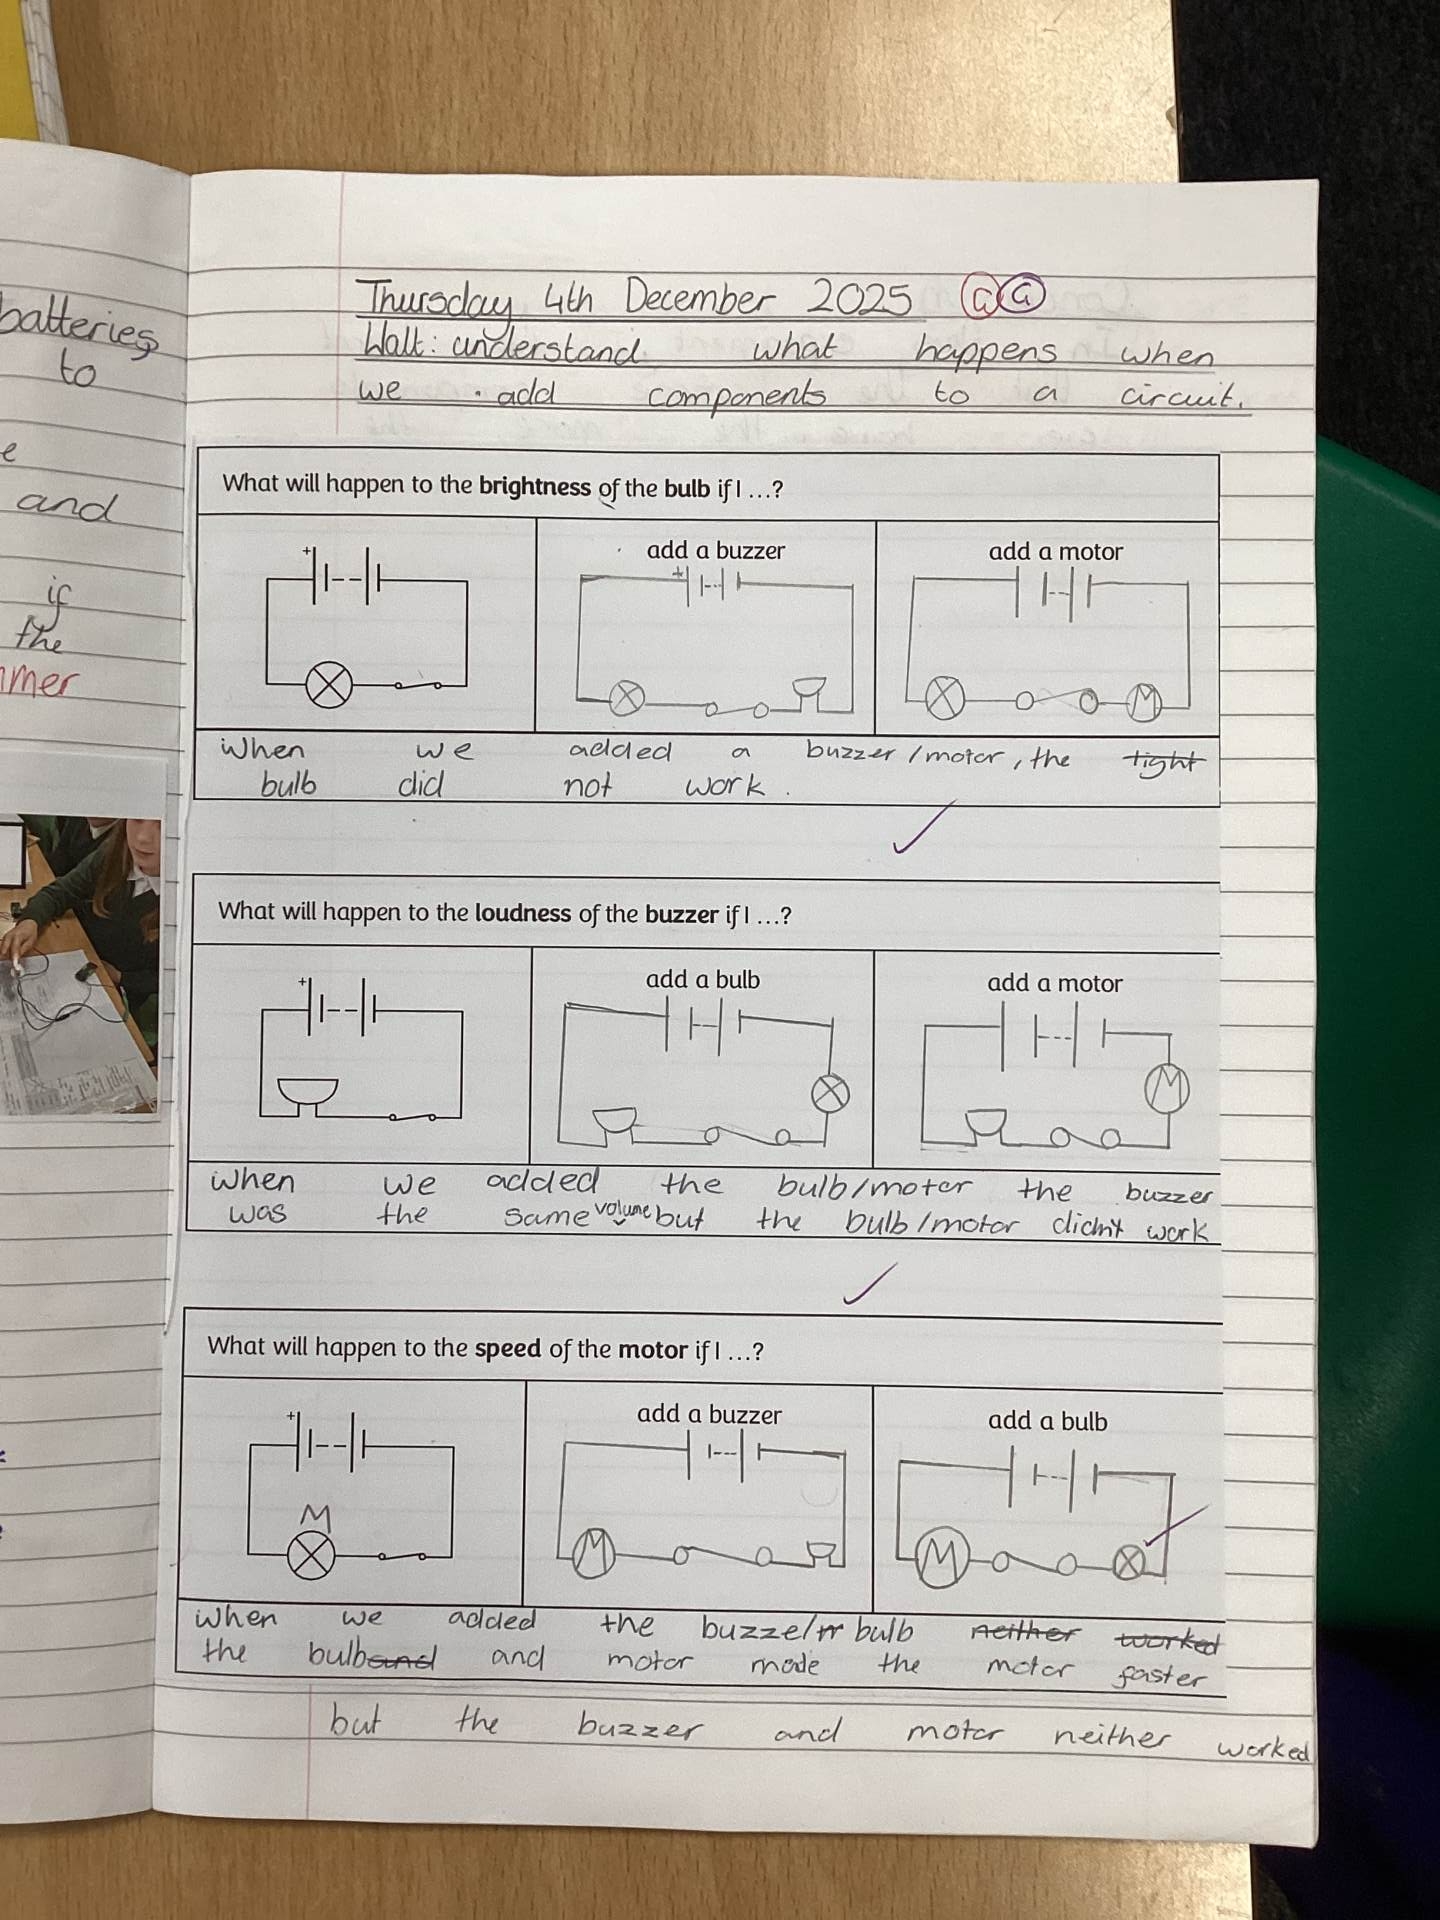 batteries
to
e
and
if
the
mer
Thursday 4th December 2025 G G
Walt: understand what happens when
we add components to a circuit.
What will happen to the brightness of the bulb if I …?
+
add a buzzer
+
add a motor
M
When we added a buzzer/motor, the tight
bulb did not work.
What will happen to the loudness of the buzzer if I …?
+
add a bulb
add a motor
M
when we added the bulb/motor the buzzer
was the same volume but the bulb/motor didn't work
What will happen to the speed of the motor if I …?
+
M
add a buzzer
M
add a bulb
M
when we added the buzzer/bulb neither worked
the bulb and and motor made the motor faster
but the buzzer and motor neither worked